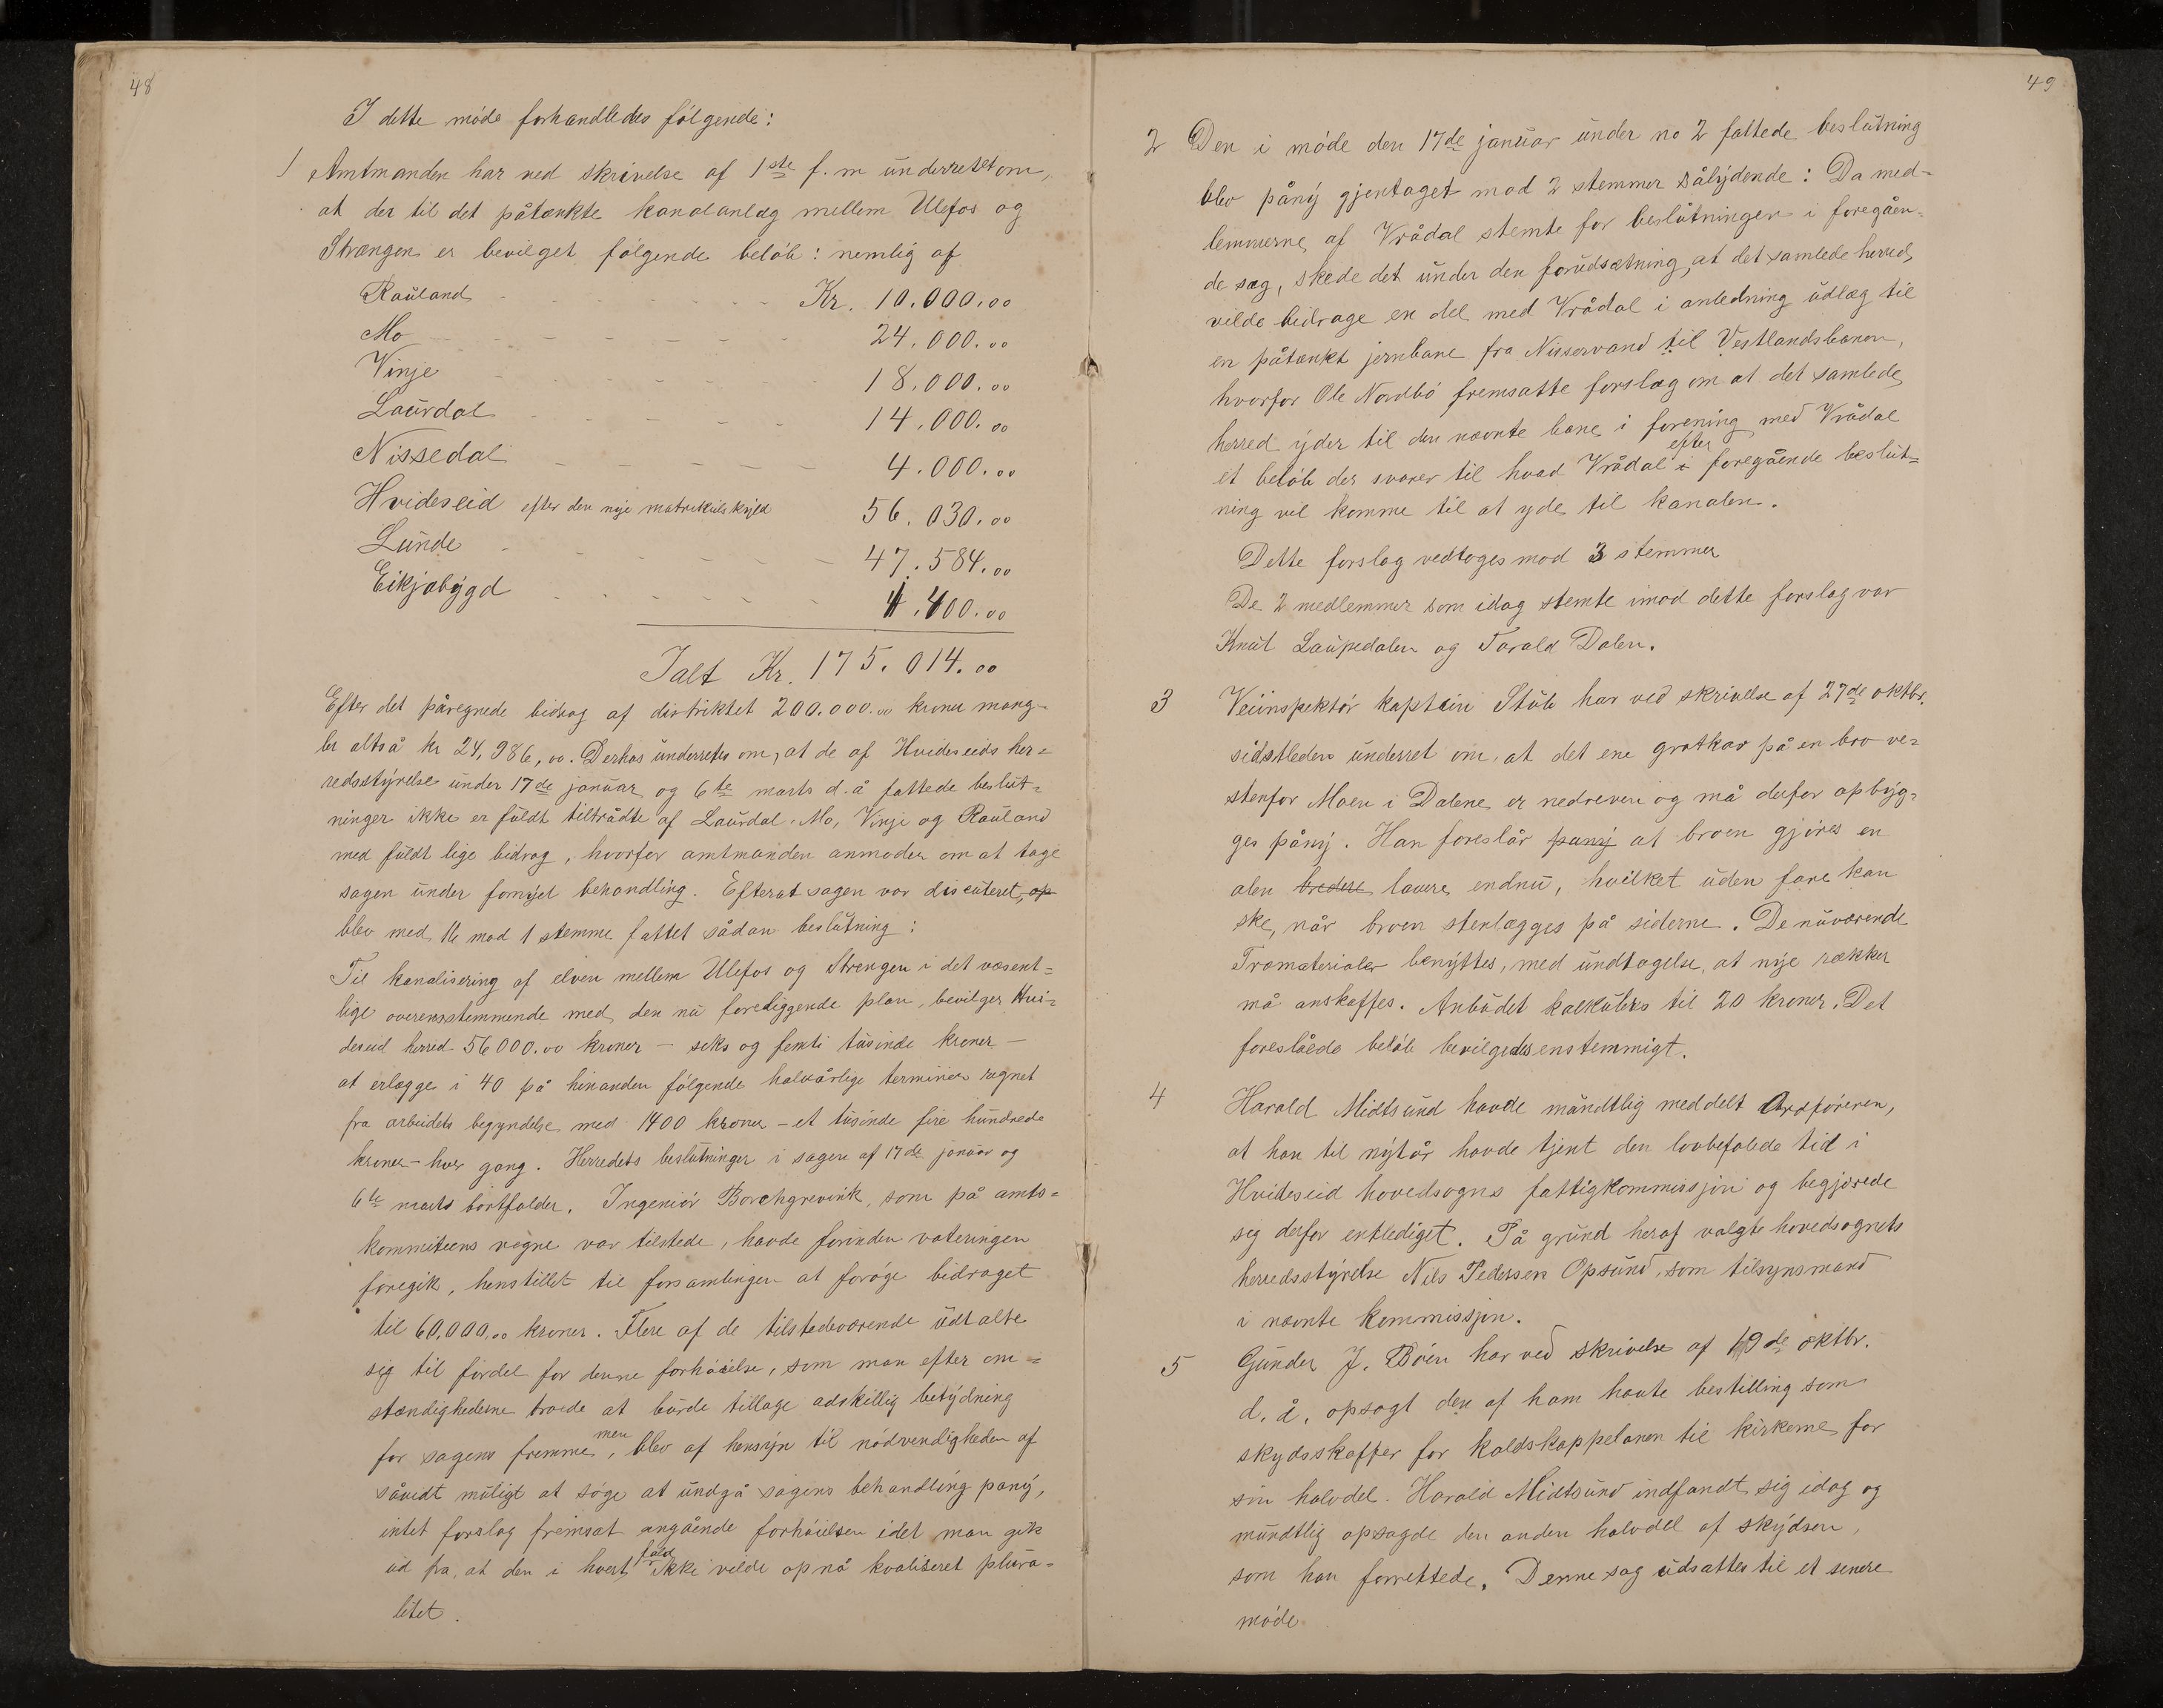 48
I dette möde forhandledes fölgende:
1 Amtmanden har ved skrivelse af 1ste f. m underrettet om,
at der til det påtænkte kanalanlæg mellem Ulefos og
Strængen er bevilget fölgende belöb: nemlig af
Rauland - - - - - - Kr. 10.000.00
Mo - - - - - - - 24.000.00
Vinje - - - - - - 18.000.00
Laurdal - - - - - 14.000.00
Nissedal - - - - - - 4.000.00
Hvideseid efter den nye matrikulskyld 56.030.00
Lunde - - - - - - 47.584.00
Eikjabygd - - - - - - 1.400.00
Ialt Kr. 175.014.00
Efter det påregnede bidrag af distriktet 200.000.00 kroner mang-
ler altså kr 24,986,00. Derhos underrettes om, at de af Hvideseids her-
redsstyrelse under 17de januar og 6te marts d. å fattede beslut-
ninger ikke er fuldt tiltrådte af Laurdal, Mo, Vinje og Rauland
med fuldt lige bidrag, hvorfor amtmanden anmoder om at tage
sagen under fornyet behandling. Efterat sagen var discuteret, op
blev med 16 mod 1 stemme fattet sådan beslutning:
Til kanalisering af elven mellem Ulefos og Strengen i det væsent-
lige overensstemmende med den nu foreliggende plan, bevilger Hvi-
deseid herred 56000.00 kroner — seks og femti tusinde kroner —
at erlægge i 40 på hinanden fölgende halvårlige terminer regnet
fra arbeidets begyndelse med 1400 kroner — et tusinde fire hundrede
kroner — hver gang. Herredets beslutninger i sagen af 17de januar og
6te marts bortfalder. Ingeniör Borchgrevink, som på amts-
kommiteens vegne var tilstede, havde forinden voteringen
foregik, henstillet til forsamlingen at foröge bidraget
til 60,000,00 kroner. Flere af de tilstedeværende udtalte
sig til fordel for denne forhöielse, som man efter om-
stændighederne troede at burde tillage adskillig betydning
for sagens fremme, men blev af hensyn til nödvendigheden af
såvidt muligt at söge at undgå sagens behandling pany,
intet forslag fremsat angående forhöielsen idet man gik
ud fra, at den i hvert fald ikke vilde opnå kvaliseret plura-
litet.
49
2 Den i möde den 17de januar under no 2 fattede beslutning
blev påny gjentaget mod 2 stemmer sålydende: Da med-
lemmerne af Vrådal stemte for beslutningen i foregåen-
de sag, skede det under den forudsætning, at det samlede herred
vilde bidrage en del med Vrådal i anledning udlæg til
en påtænkt jernbane fra Nisservand til Vestlandsbanen,
hvorfor Ole Nordbö fremsatte forslag om at det samlede
herred yder til den nævnte bane i forening med Vrådal
et belöb der svarer til hvad Vrådal i efter foregående beslut-
ning vil komme til at yde til kanalen.
Dette forslag vedtoges mod 3 stemmer
De 2 medlemmer som idag stemte imod dette forslag var
Knut Laupedalen og Tarald Dalen.
3 Veiinspektör kaptein Stub har ved skrivelse af 27de oktbr.
sidstleden underret om, at det ene grotkar på en bro ve-
stenfor Moen i Dalene er nedreven og må derfor opbyg-
ges påny. Han foreslår pany at broen gjöres en
alen bredere lavere endnu, hvilket uden fare kan
ske, når broen stenlægges på siderne. De nuværende
Træmaterialer benyttes, med undtagelse, at nye rækker
må anskaffes. Anbudet kalkuleres til 20 kroner. Det
foreslåede belöb bevilgedes enstemmigt.
4 Harald Midtsund havde mundtlig meddelt Ordföreren,
at han til nytår havde tjent den lovbefalede tid i
Hvideseid hovedsogns fattigkommissjon og begjærede
sig derfor entlediget. På grund heraf valgte hovedsognets
herredsstyrelse Nils Pedersen Opsund, som tilsynsmand
i nævnte kommissjon.
5 Gunder J. Böen har ved skrivelse af 19de oktbr.
d. å. opsagt den af ham havte bestilling som
skydsskaffer for kaldskappelanen til kirkerne for
sin halvdel. Harald Midtsund indfandt sig idag og
mundtlig opsagde den anden halvdel af skydsen,
som han forrettede. Denne sag udsattes til et senere
möde